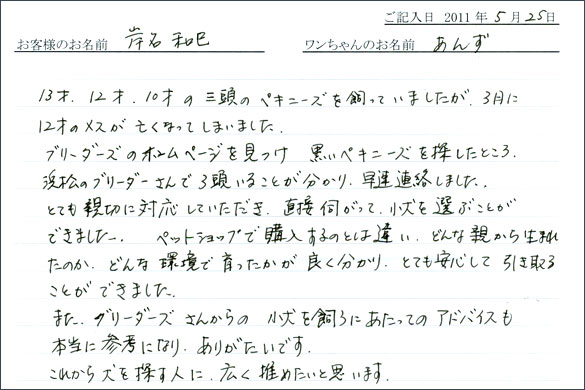 ご記入日 2011 年 5 月 25 日
お客様のお名前 岸石 和巳 ワンちゃんのお名前 あんず
13才、12才、10才の三頭のペキニーズを飼っていましたが、3月に
12才のメスが亡くなってしまいました。
ブリーダーズのホームページを見つけ 黒いペキニーズを探したところ、
浜松のブリーダーさんで3頭いることが分かり、早速連絡しました。
とても親切に対応していただき、直接伺がって、小犬を選ぶことが
できました。 ペットショップで購入するのとは違い、どんな親から生まれ
たのか、どんな環境で育ったかが良く分かり、とても安心して引き取る
ことができました。
また、ブリーダーズさんからの 小犬を飼うにあたってのアドバイスも
本当に参考になり、ありがたいです。
これから犬を探す人に、広く推めたいと思います。